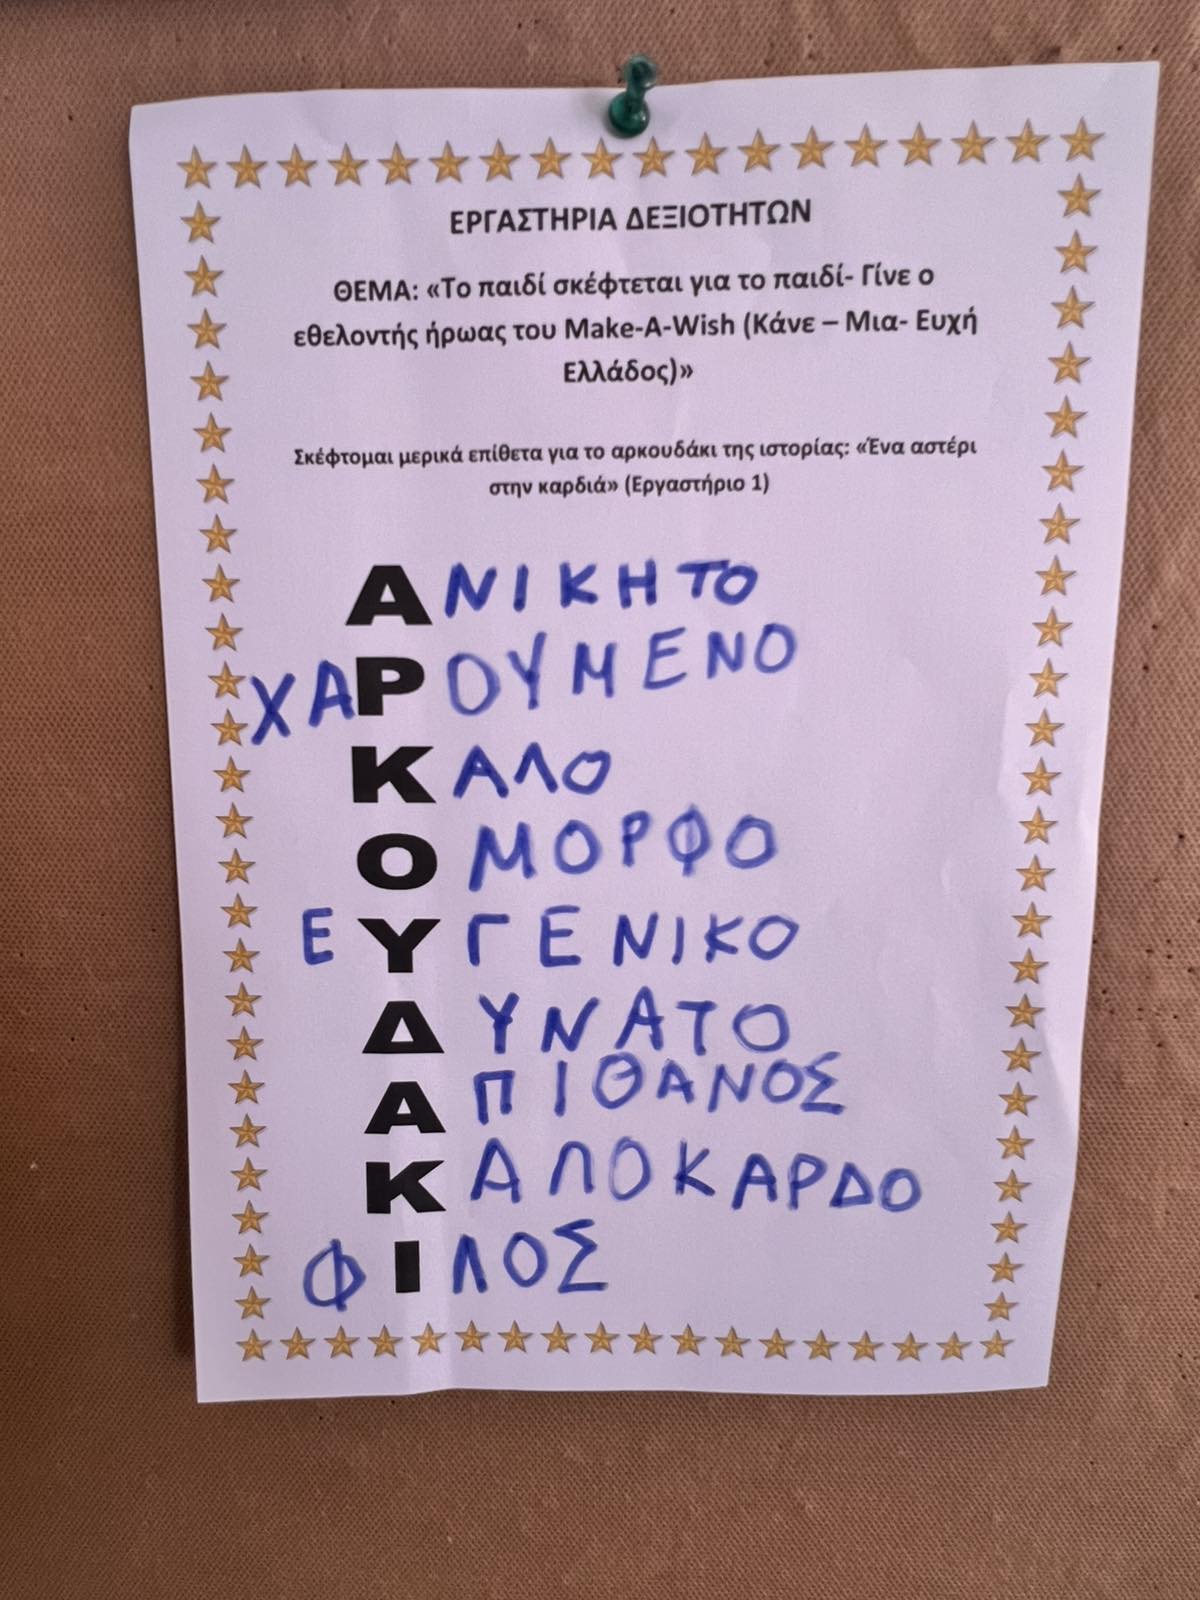 ΕΡΓΑΣΤΗΡΙΑ ΔΕΞΙΟΤΗΤΩΝ
ΘΕΜΑ: «Το παιδί σκέφτεται για το παιδί- Γίνε ο
εθελοντής ήρωας του Make-A-Wish (Κάνε – Μια- Ευχή
Ελλάδος)»
Σκέφτομαι μερικά επίθετα για το αρκουδάκι της ιστορίας: «Ένα αστέρι
στην καρδιά» (Εργαστήριο 1)
ΑΝΙΚΗΤΟ
ΧΑΡΟΥΜΕΝΟ
ΚΑΛΟ
ΟΜΟΡΦΟ
ΕΥΓΕΝΙΚΟ
ΔΥΝΑΤΟ
ΑΠΙΘΑΝΟΣ
ΚΑΛΟΚΑΡΔΟ
ΦΙΛΟΣ